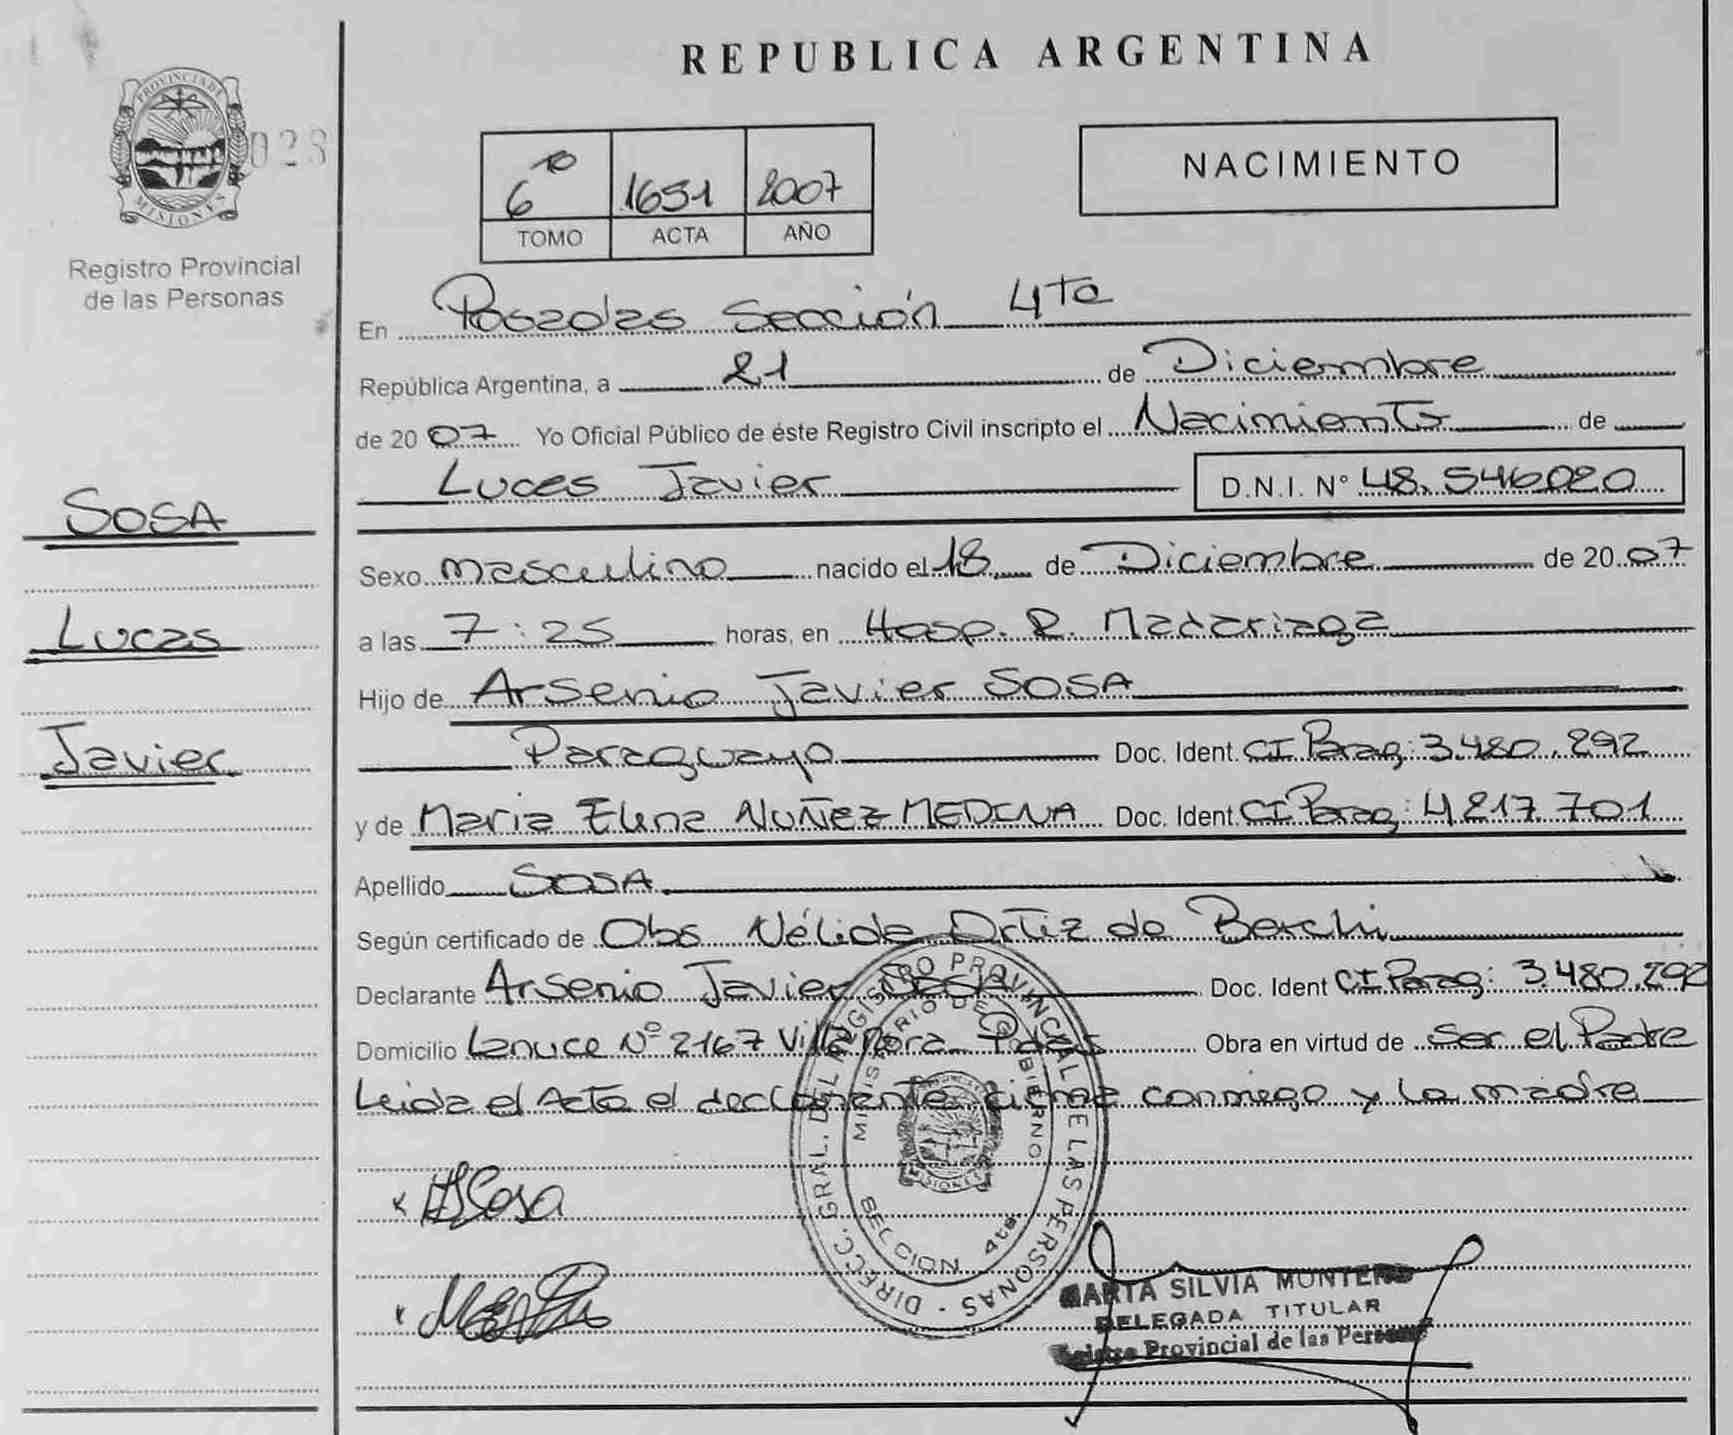 REPUBLICA ARGENTINA
PROVINCIA DE
MISIONES
028
Registro Provincial
de las Personas
6to 1651 2007
TOMO ACTA AÑO
NACIMIENTO
En Posadas Sección 4ta
República Argentina, a 21 de Diciembre
de 2007 Yo Oficial Público de éste Registro Civil inscripto el Nacimiento de
Lucas Javier D.N.I. Nº 48.546020
SOSA
Lucas
Javier
Sexo masculino nacido el 18 de Diciembre de 2007
a las 7:25 horas, en Hosp. R. Madariaga
Hijo de Arsenio Javier SOSA
Paraguayo Doc. Ident. CI Parag: 3.480.292
y de Maria Elena NUÑEZ MEDINA Doc. Ident CI Parag: 4817.701
Apellido SOSA
Según certificado de Obs Nélida Ortiz de
Declarante Arsenio Javier SOSA Doc. Ident CI Parag: 3.480.292
Domicilio Nº 2167 Villa Pdas Obra en virtud de Ser el Padre
Leida el Acta el declarante firma conmigo y la madre
DIRECC. GRAL. DEL REGISTRO PROVINCIAL DE LAS PERSONAS
MINISTERIO DE GOBIERNO
MISIONES
SECCION 4ta.
Sosa
MARTA SILVIA MONTERO
DELEGADA TITULAR
Registro Provincial de las Personas